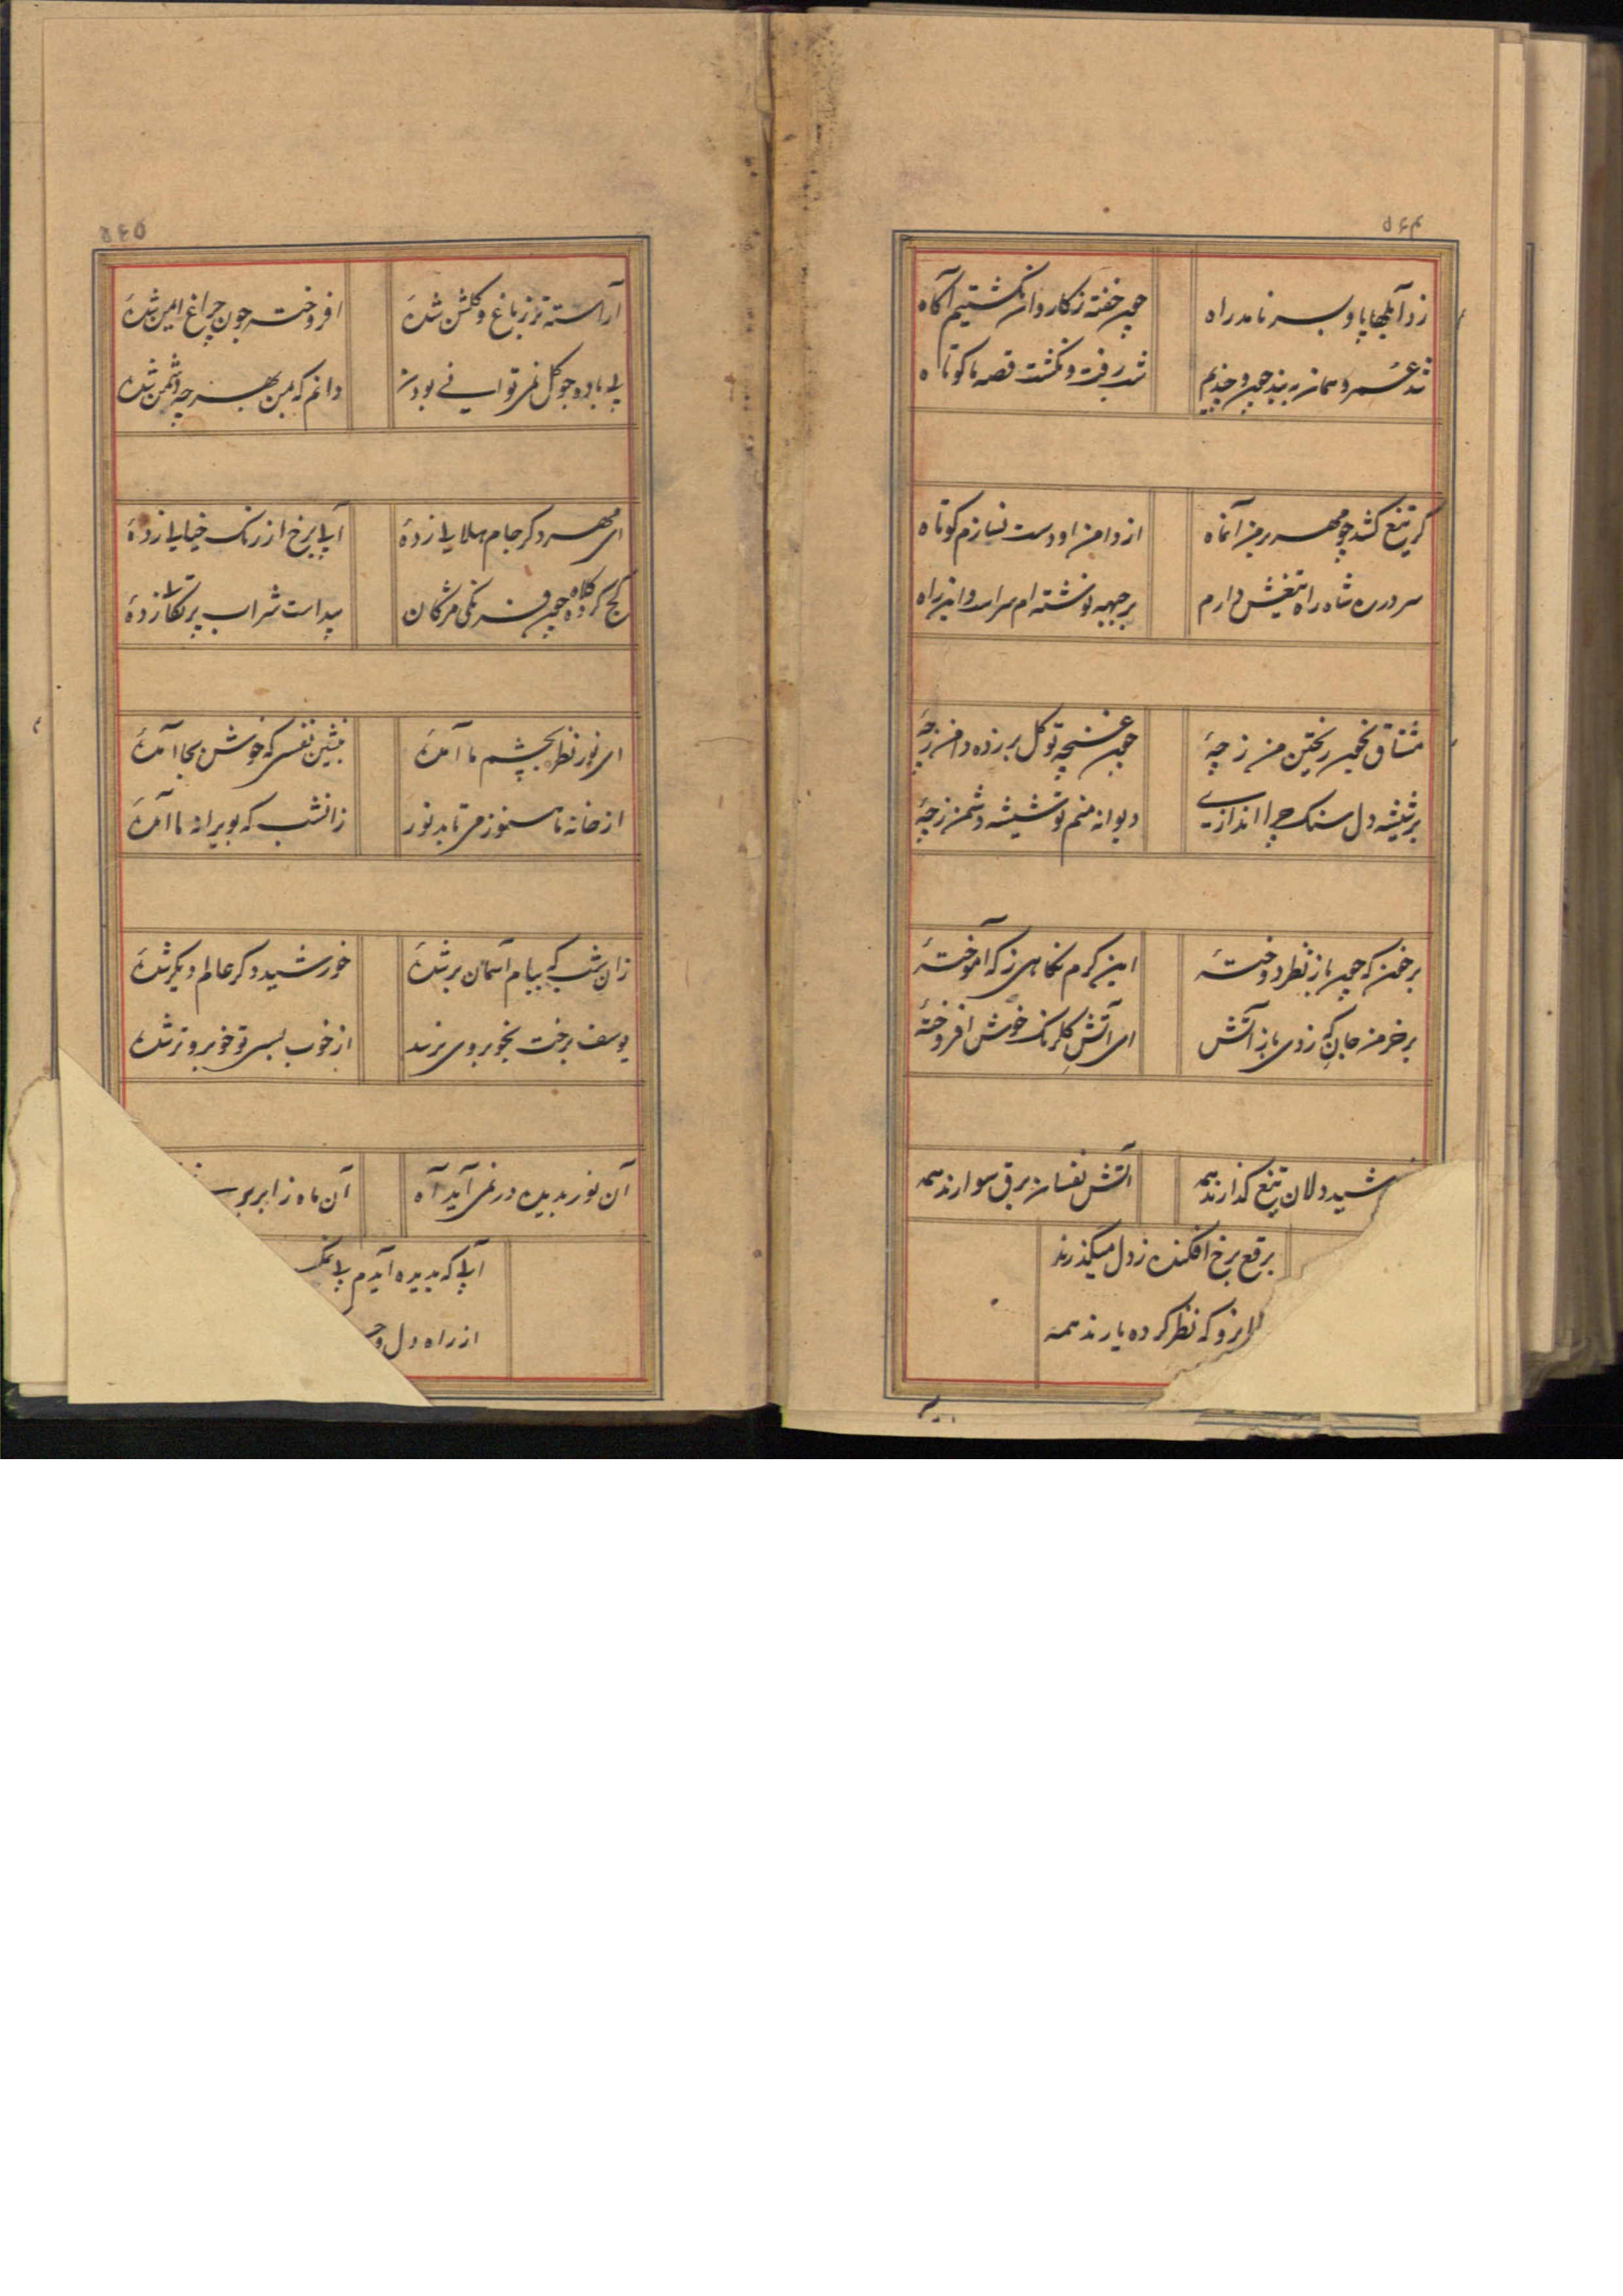 ۵۶۴
زد آبلها پا و بسر نامد راه
چون خفته ز کاروان نگشتیم آگاه
شد عمر و همان به بند چون و چندیم
شب رفت و نگشت قصه ما کوتاه
گر تیغ کشد چو مهر بر من آنماه
از دامن او دست نسازم کوتاه
سر در ره شاه راه تیغش دارم
بر جبهه نوشته ام سراسر و این راه
مشتاق بخون ریختن من ز چهٔ
چون غنچه تو گل بر زده دامن ز چهٔ
بر شیشه دل سنک چرا اندازیی
دیوانه منم تو شیشه دشمن ز چهٔ
بر من که چون باز نظر دوختهٔ
این کرم نکاهی ز که آموختهٔ
بر خرمن جان که زدی باز آتش
ای آتش گلرنک خوش افروختهٔ
شید دلان تیغ گذارند همه
آتش نفسان برق سوارند همه
برقع برخ افکنده ز دل میگذرند
رو که نظر کرده یارند همه
۵۶۵
آراسته تر ز باغ و گلشن شدهٔ
افروخته چون چراغ ایمن شدهٔ
بی باده چو گل نمی توانی بودن
دانم که بمن بهر چه دشمن شدهٔ
ای مهر دگر جام هلالی زدهٔ
آبی برخ از رنک خیالی زدهٔ
کج کرده کلاه چون فرنکی مژکان
پیداست شراب پرتکالی زدهٔ
ای نور نظر بچشم ما آمدهٔ
بنشین نفسی که خوش بجا آمدهٔ
از خانه ما هنوز می تابد نور
زانشب که بویرانه ما آمدهٔ
زان شب که ببام آسمان بر شدهٔ
خورشید دگر عالم دیگر شدهٔ
یوسف برخت بخوبروی نرسد
از خوب بسی تو خوبروتر شدهٔ
آن نور بدیده در نمی آید آه
آن ماه ز ابر بر
آبی که بدیده آیدم بی
از راه دل و